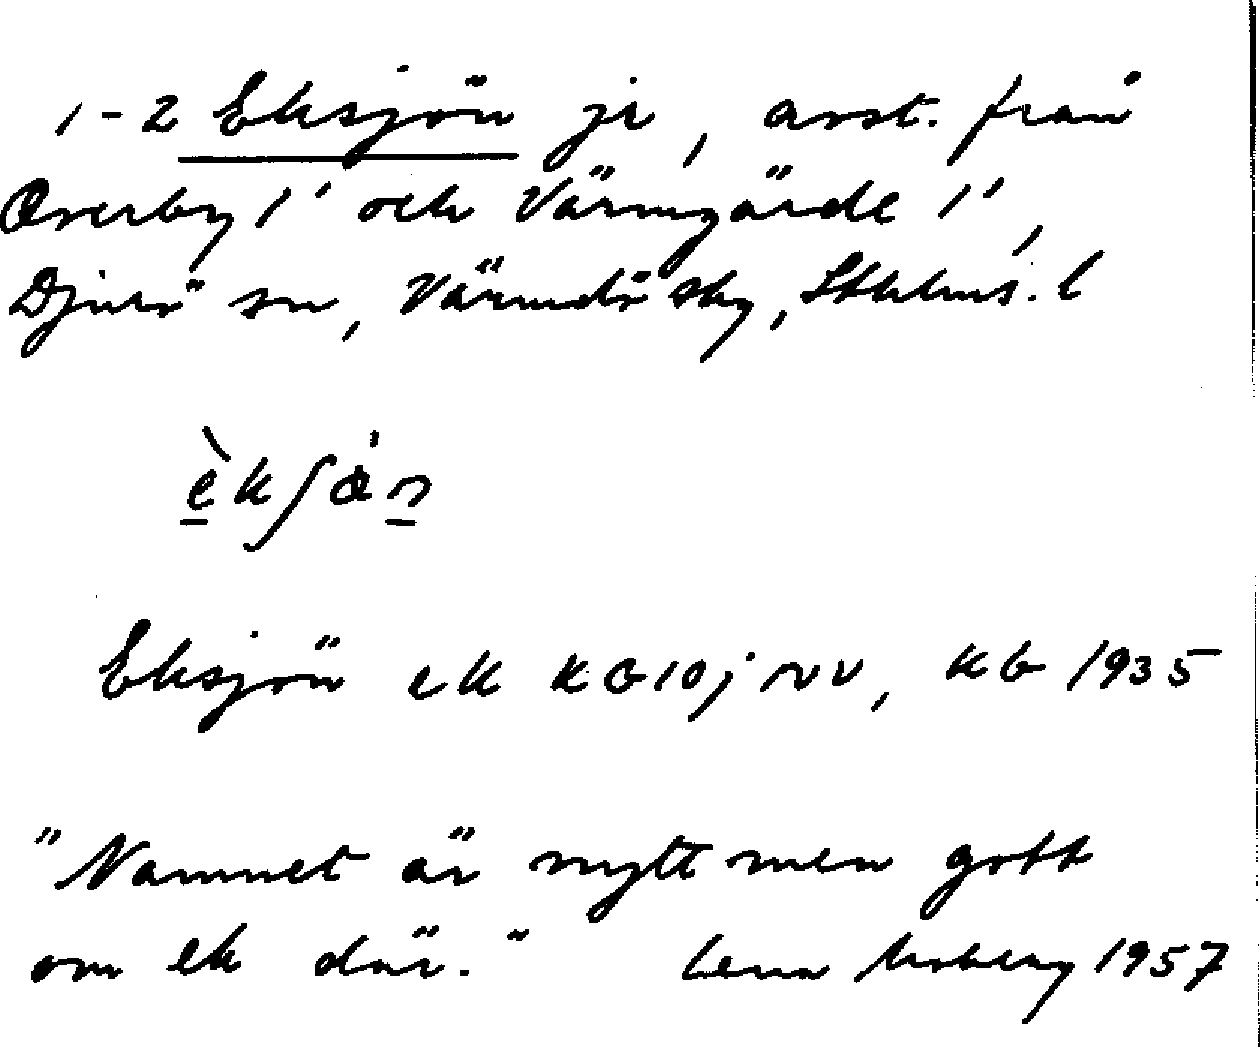 1-2 Eksjön jr, avst. från
Överby 1' och Värmgärde 1',
Djurö sn, Värmdö sky, Sthlms. l
èkʃȧn
Eksjön ek KG10j NV, KG 1935
"Namnet är nytt men gott
om ek där." Lena Moberg 1957